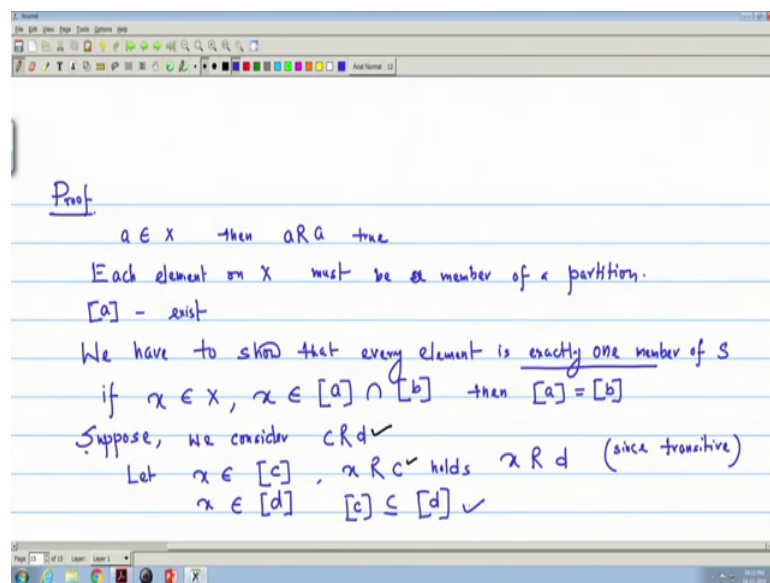 Journal
File Edit View Page Tools Options Help
Arial Normal 12
Proof
a ∈ X then aRa true
Each element on X must be a member of a partition.
[a] - exist
We have to show that every element is exactly one member of S
if x ∈ X, x ∈ [a] ∩ [b] then [a] = [b]
Suppose, we consider cRd ✓
Let x ∈ [c], xRc ✓ holds x R d (since transitive)
x ∈ [d] [c] ⊆ [d] ✓
Page 15 of 15 Layer: Layer 1